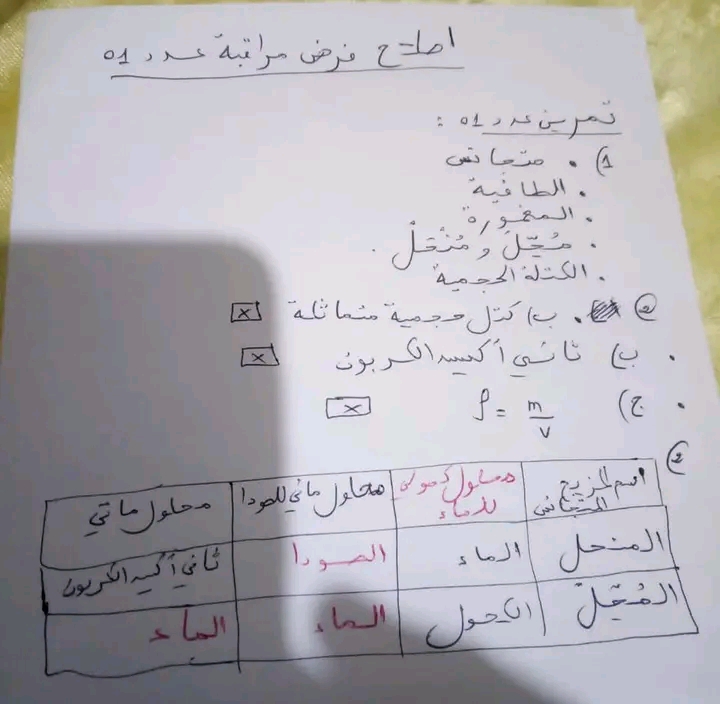 اصلاح فرض مراقبة عدد 01
تمرين عدد 01 :
1) . متجانس
. الطافية
. المغمورة
. مُحِلّ و مُنْحَلّ .
. الكتلة الحجمية
2 . ب) كتل حجمية متماثلة x
. ب) ثاني أكسيد الكربون x
. ج) ρ = m/V x
2
اسم المزيج المتجانس محلول كحولي للماء محلول مائي للصودا محلول مائي
المنحل الماء الصودا ثاني أكسيد الكربون
المُحِلّ الكحول الماء الماء